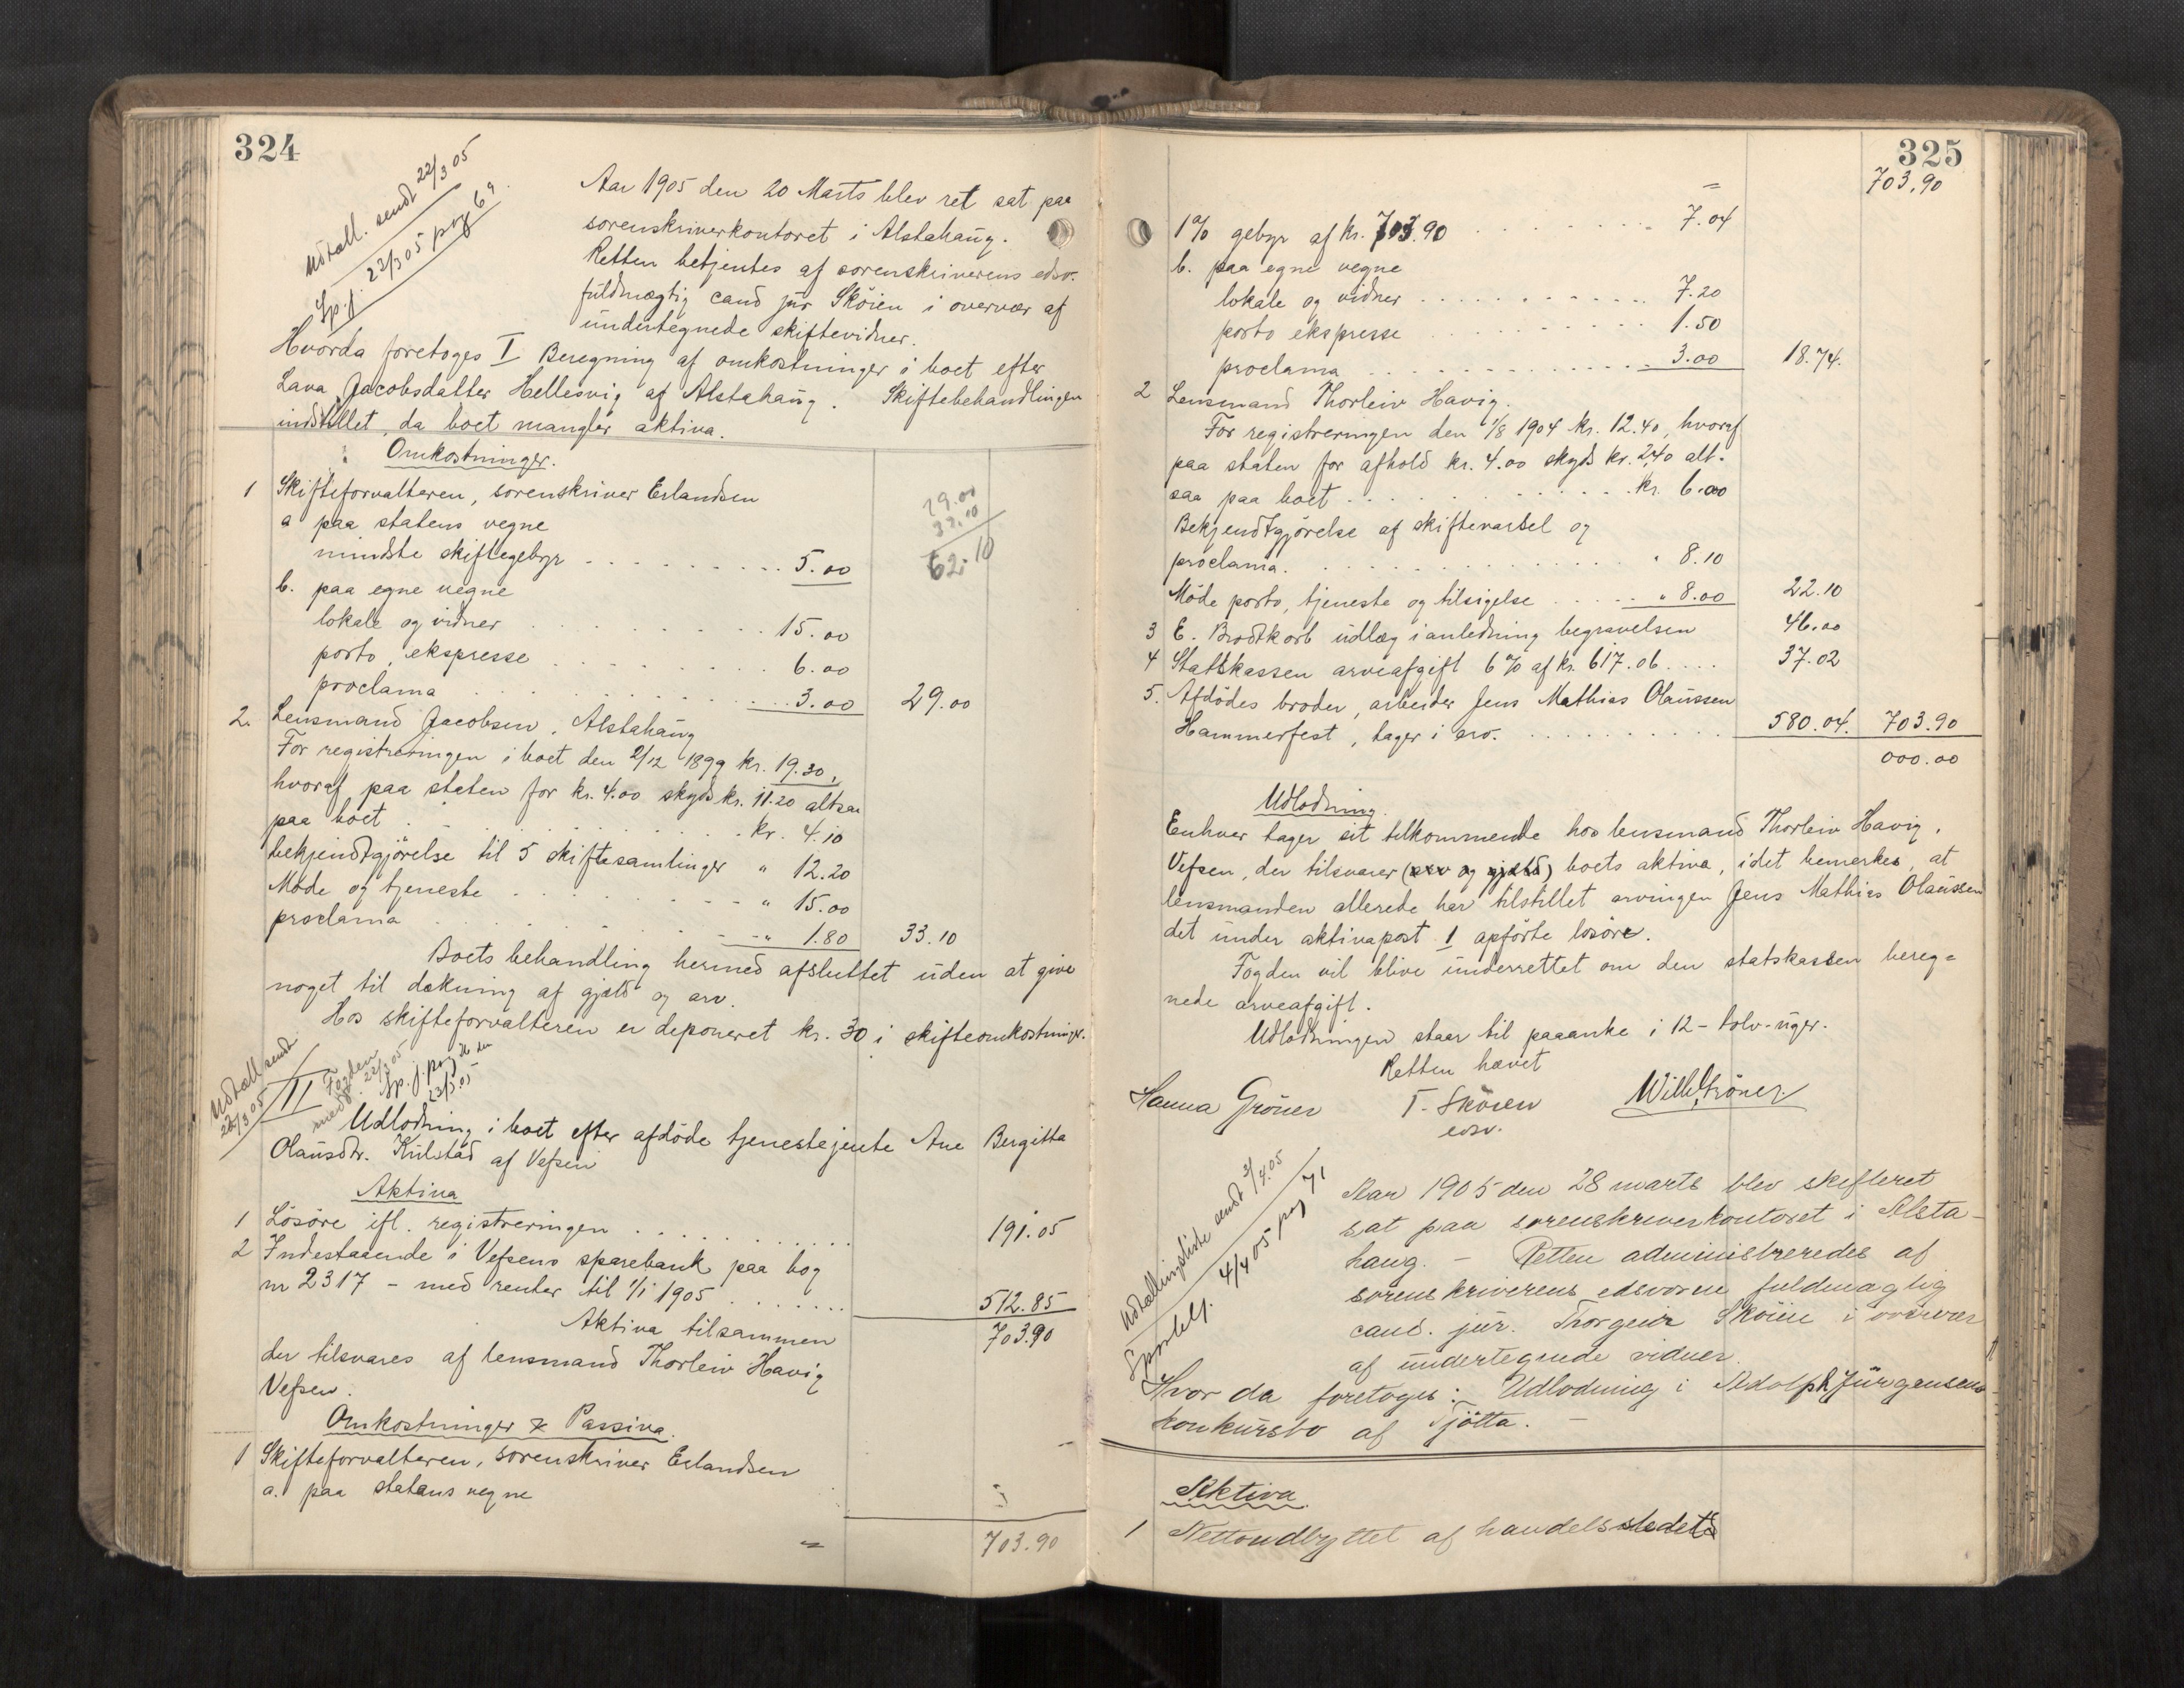 324
Udtall. sendt 22/3 05
Sp.j. 22/3 05 pag 69.
Aar 1905 den 20 Marts blev ret sat paa
sorenskriverkontoret i Alstahaug.
Retten betjentes af sorenskriverens edsv.
fuldmægtig cand jur Sköien i overvær af
undertegnede skiftevidner.
Hvorda foretoges I Beregning af omkostninger i boet efter
Lava Jacobsdatter Hellesvig af Alstahaug. Skiftebehandlingen
indstillet, da boet mangler aktiva.
Omkostninger.
1 Skifteforvalteren, sorenskriver Erlandsen
a paa statens vegne
mindste skiftegebyr . . . . . . . . . . 5.00
29.00
33.10
62.10
b. paa egne vegne
lokale og vidner . . . . . . . . . . 15.00
porto, ekspresse . . . . . . . . . 6.00
proclama . . . . . . . . . . . . 3.00 29.00
2. Lensmand Jacobsen, Alstahaug
For registreringen i boet den 2/12 1899 kr. 19.30,
hvoraf paa staten for kr. 4.00 skyds kr. 11.20 altsaa
paa boet . . . . . . . . . . . . kr. 4.10
bekjendtgjörelse til 5 skiftesamlinger " 12.20
Møde og tjeneste . . . . . . . . . " 15.00
proclama . . . . . . . . . . . . " 1.80 33.10
Boets behandling hermed afsluttet uden at give
noget til dækning af gjæld og arv.
Hos skifteforvalteren er deponeret kr. 30 i skifteomkostninger.
Udtall sendt
22/3 05
II
Fogden
medd. 22/3 05
Sp. j. pag
23/3 05
Udlodning i boet efter afdöde tjenestejente Ane Bergitta
Olausdtr. Kulstad af Vefsen
Aktiva
1 Lösöre ifl. registreringen . . . . . . . . . . . 191.05
2 Indestaaende i Vefsens sparebank paa bog
nr 2317 – med renter til 1/1 1905 . . . . . . . 512.85
Aktiva tilsammen 703.90
der tilsvares af lensmand Thorleiv Havig
Vefsen.
Omkostninger & Passiva.
1 Skifteforvalteren, sorenskriver Erlandsen
a. paa statens vegne
" 703.90
325
" 703.90
1% gebyr af kr. 703.90 . . . . . . . . . 7.04
b. paa egne vegne
lokale og vidner . . . . . . . . . . . 7.20
porto ekspresse . . . . . . . . . . 1.50
proclama . . . . . . . . . . . . . . 3.00 18.74.
2 Lensmand Thorleiv Havig.
For registreringen den 1/8 1904 kr. 12.40, hvoraf
paa staten for afhold kr. 4.00 skyds kr. 2.40 alt-
saa paa boet . . . . . . . . . . . . . kr. 6.00
Bekjendtgjörelse af skiftevarsel og
proclama. . . . . . . . . . . . . . . " 8.10
Möde porto, tjeneste og tilsigelse . . . . . " 8.00 22.10
3 E. Brodtkorb udlæg i anledning begravelsen 46.00
4 Statskassen arveafgift 6% af kr. 617.06. . . . 37.02
5. Afdödes broder, arbeider Jens Mathias Olaussen
Hammerfest, tager i arv. . . . . . . . . . . 580.04. 703.90
000.00
Udlodning.
Enhver tager sit tilkommende hos lensmand Thorleiv Havig,
Vefsen, der tilsvarer (arv og gjæld) boets aktiva, idet bemerkes, at
lensmanden allerede har tilstillet arvingen Jens Mathias Olaussen
det under aktivapost 1 apförte lösöre.
Fogden vil blive underrettet om den statskassen bereg-
nede arveafgift.
Udlodningen staar til paaanke i 12 – tolv – uger.
Retten hævet
Hanna Gröner T. Sköien Wilh. Gröner.
edsv.
Udtællingsliste sendt 3/4.05
Sportelj. 4/4 05 pag 71
Aar 1905 den 28 marts blev skifteret
sat paa sorenskriverkontoret i Alsta-
haug. – Retten administreredes af
sorenskriverens edsvorne fuldmægtig
cand. jur. Thorgeir Sköien i overvær
af undertegnede vidner.
Hvor da foretoges: Udlodning i Adolph Jürgensens
konkursbo af Tjötta. –
Aktiva
1 Nettoudbyttet af handelsstedets